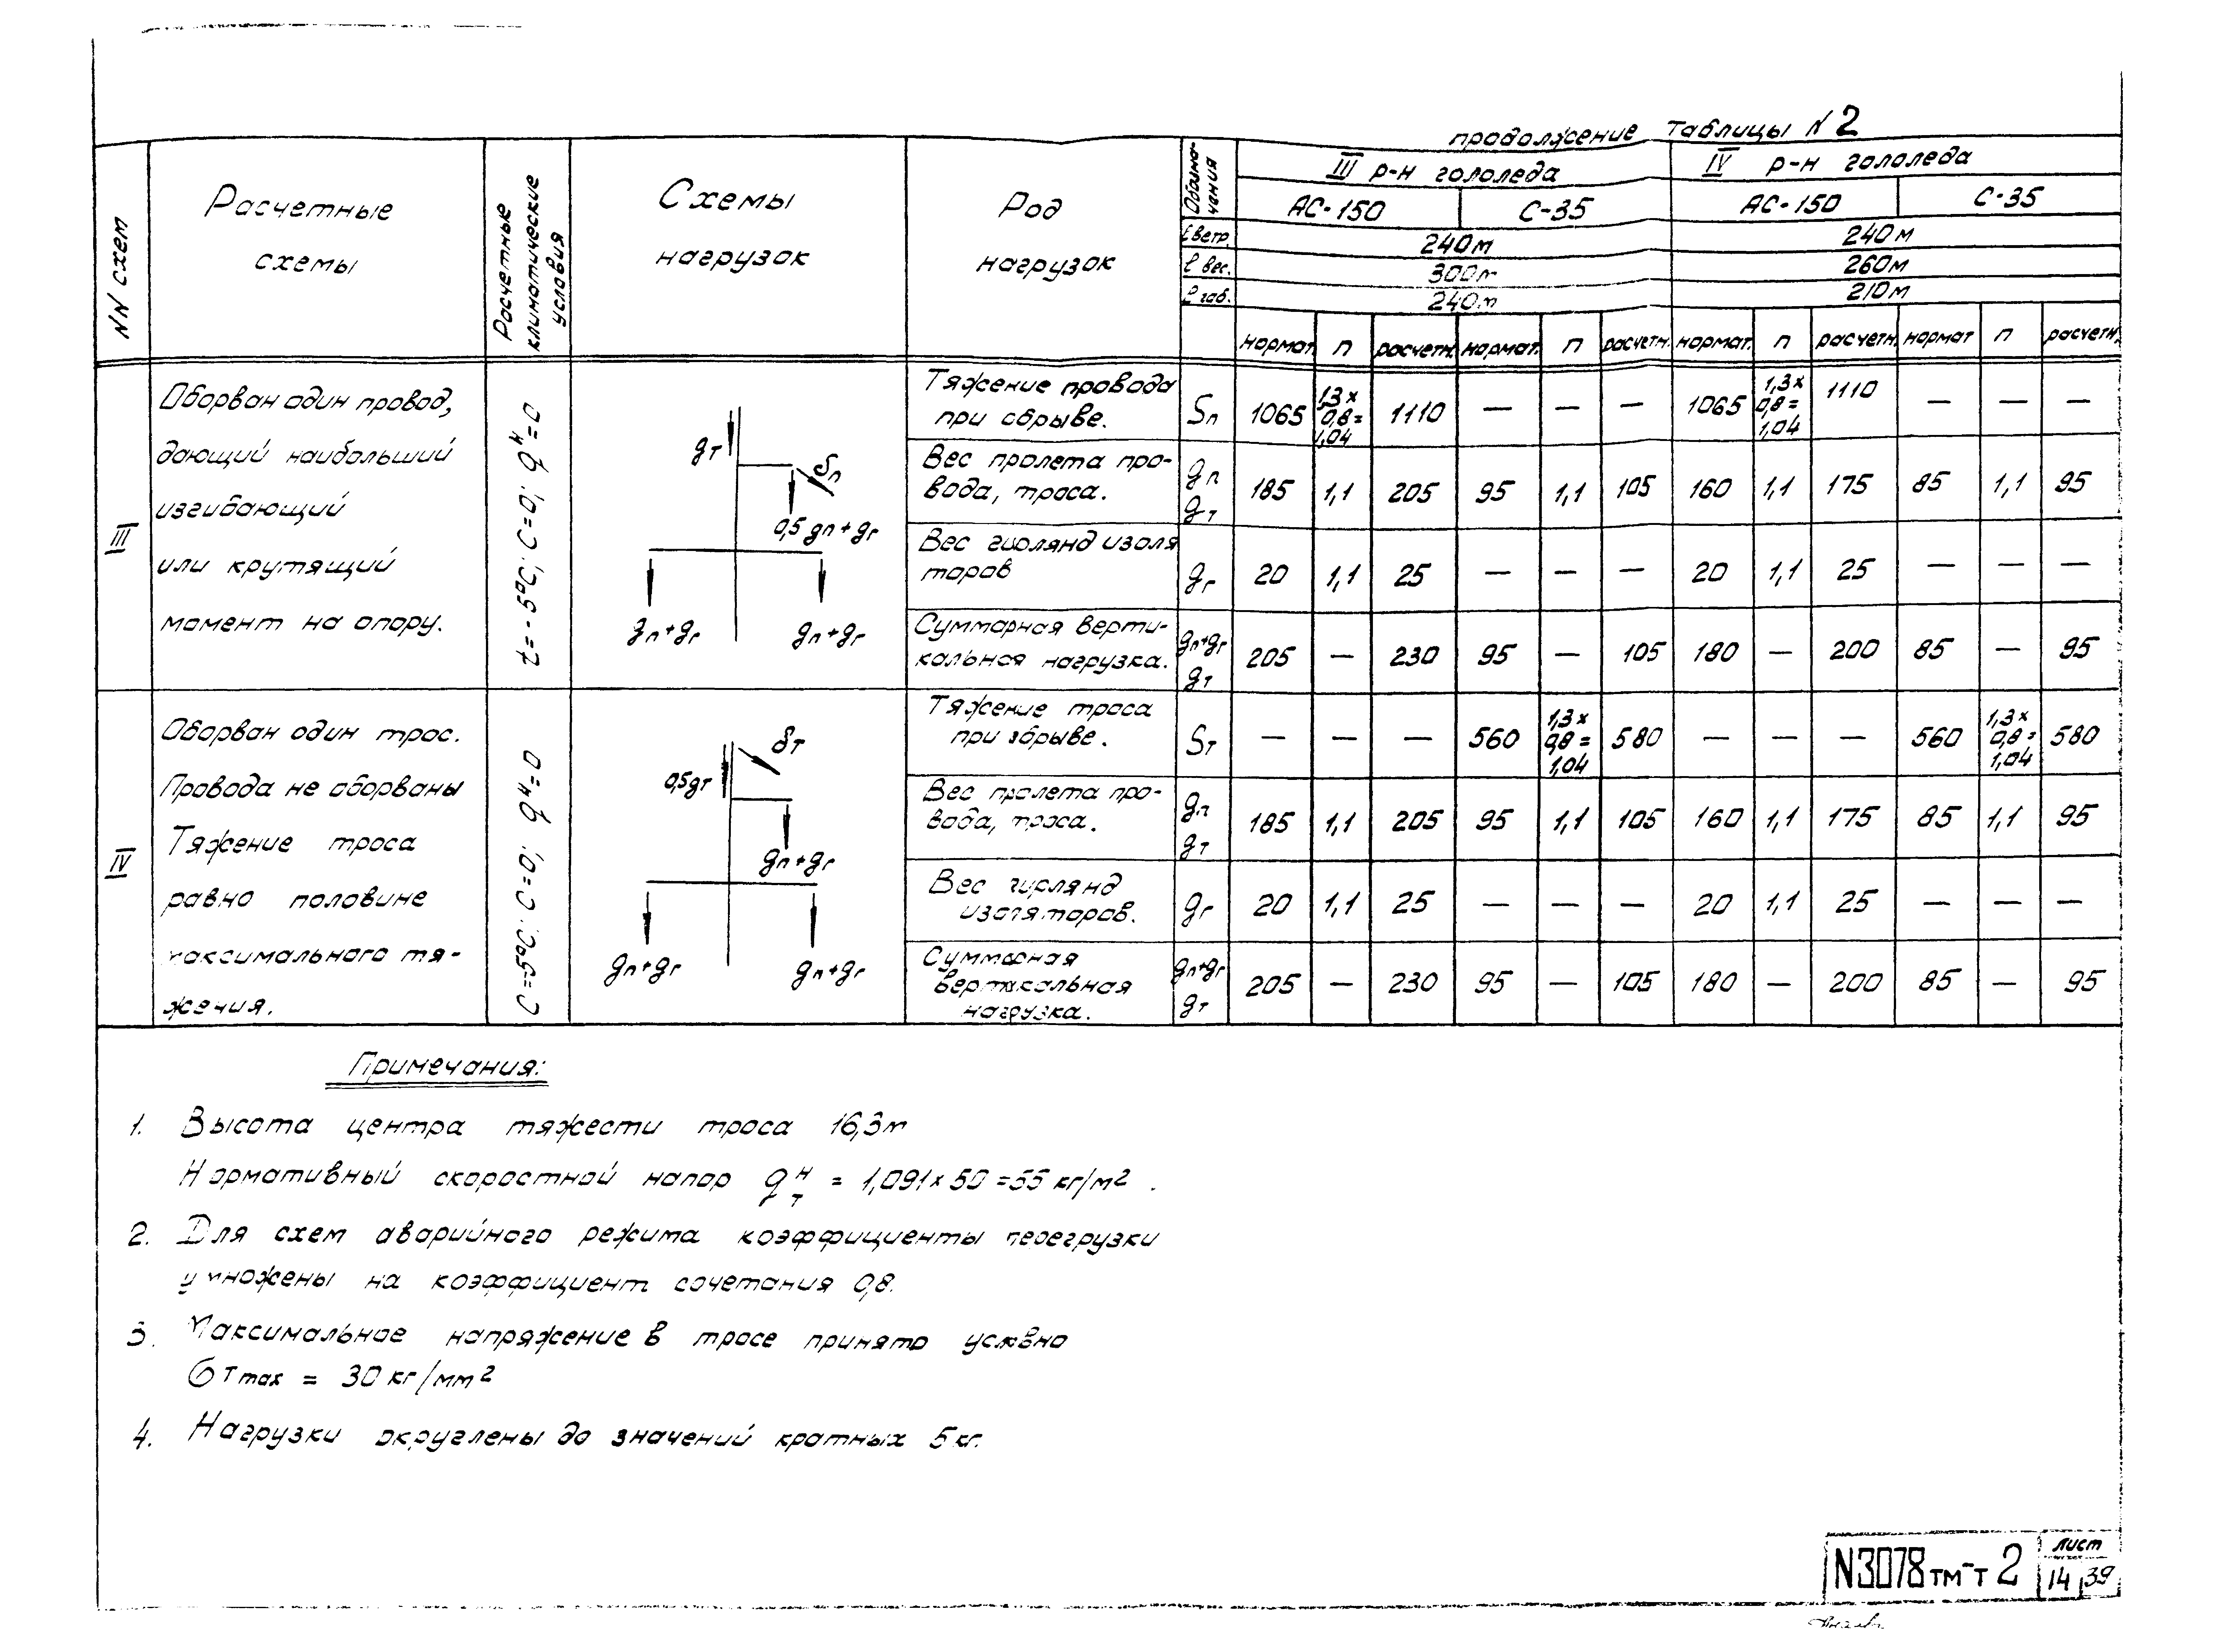 продолжение таблицы N 2
NN схем
Расчетные
схемы
Расчетные
климатические
условия
Схемы
нагрузок
Род
нагрузок
Обозна-
чения
III р-н гололеда
IV р-н гололеда
АС-150 С-35 АС-150 С-35
ℓ ветр. 240м 240м
ℓ вес. 300м 260м
ℓ габ. 240м 210м
нормат. п расчетн. нормат. п расчетн. нормат. п расчетн. нормат п расчетн.
III
Оборван один провод,
дающий наибольший
изгибающий
или крутящий
момент на опору.
t = -5°С; С=0; qᴴ=0
gт
Sп
0,5 gп+gг
gп+gг gп+gг
Тяжение провода
при обрыве.
Sп 1065 1,3х 0,8= 1,04 1110 — — — 1065 1,3х 0,8= 1,04 1110 — — —
Вес пролета про-
вода, троса.
gп gт 185 1,1 205 95 1,1 105 160 1,1 175 85 1,1 95
Вес гирлянд изоля
торов
gг 20 1,1 25 — — — 20 1,1 25 — — —
Суммарная верти-
кальная нагрузка.
gп+gг gт 205 — 230 95 — 105 180 — 200 85 — 95
IV
Оборван один трос.
Провода не оборваны
Тяжение троса
равно половине
максимального тя-
жения.
С=5°С; С=0; qᴴ=0
Sт
0,5gт
gп+gг
gп+gг gп+gг
Тяжение троса
при обрыве.
Sт — — — 560 1,3х 0,8= 1,04 580 — — — 560 1,3х 0,8= 1,04 580
Вес пролета про-
вода, троса.
gп gт 185 1,1 205 95 1,1 105 160 1,1 175 85 1,1 95
Вес гирлянд
изоляторов.
gг 20 1,1 25 — — — 20 1,1 25 — — —
Суммарная
вертикальная
нагрузка.
gп+gг gт 205 — 230 95 — 105 180 — 200 85 — 95
Примечания:
1. Высота центра тяжести троса 16,3м
Нормативный скоростной напор qᴴт = 1,091х50=55 кг/м².
2. Для схем аварийного режима коэффициенты перегрузки
умножены на коэффициент сочетания 0,8.
3. Максимальное напряжение в тросе принято условно
σт max = 30 кг/мм²
4. Нагрузки округлены до значений кратных 5 кг.
N3078тм-т2
лист
14 39